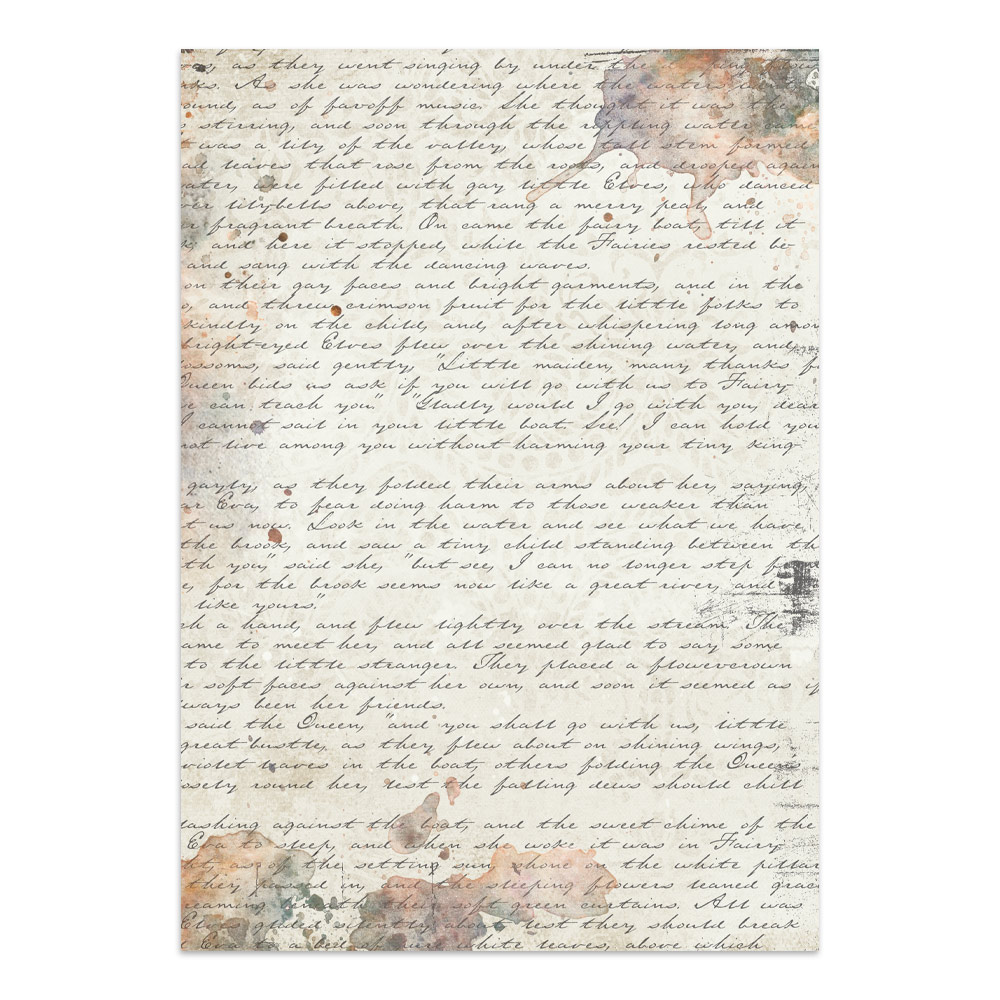 as they went singing by under the
As she was wondering where the waters
ound, as of faroff music. She thought it was the
stirring, and soon through the rippling water came
t was a lily of the valley, whose tall stem formed
leaves that rose from the roots, and drooped again
ater, were filled with gay little Elves, who danced
lilybells above, that rang a merry peal, and
r fragrant breath. On came the fairy boat, till it
and here it stopped, while the Fairies rested be-
and sang with the dancing waves.
on their gay faces and bright garments, and in the
and threw crimson fruit for the little folks to
kindly on the child, and, after whispering long amon
bright-eyed Elves flew over the shining water, and,
ossoms, said gently, "Little maiden, many thanks f
Queen bids us ask if you will go with us to Fairy-
we can teach you." "Gladly would I go with you, dear
I cannot sail in your little boat. See! I can hold you
not live among you without harming your tiny king-
gayly, as they folded their arms about her, saying,
ar Eva, to fear doing harm to those weaker than
t us now. Look in the water and see what we have
the brook, and saw a tiny child standing between th
th you," said she, "but see, I can no longer step
for the brook seems now like a great river, and
like yours."
ch a hand, and flew lightly over the stream. The
ame to meet her, and all seemed glad to say some
to the little stranger. They placed a flowercrown
r soft faces against her own, and soon it seemed as if
lways been her friends.
said the Queen, "and you shall go with us, little
great bustle, as they flew about on shining wings,
violet leaves in the boat, others folding the Queen's
osely round her, lest the falling dews should chill
lashing against the boat, and the sweet chime of the
Eva to sleep, and when she woke it was in Fairy-
as of the setting sun, shone on the white pillar
they passed in, and the sleeping flowers leaned grac
reaming beneath their soft green curtains. All was
Elves glided silently about, lest they should break
Eva to a bed of pure white leaves, above which